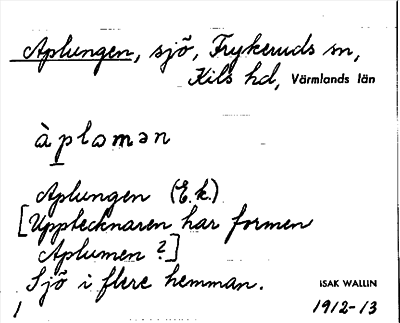 Aplungen, sjö, Frykeruds sn,
Kils hd, Värmlands län
àpləmən
Aplungen (E.k.)
[Upptecknaren har formen
Aplumen ?]
Sjö i flere hemman.
ISAK WALLIN
1 1912-13